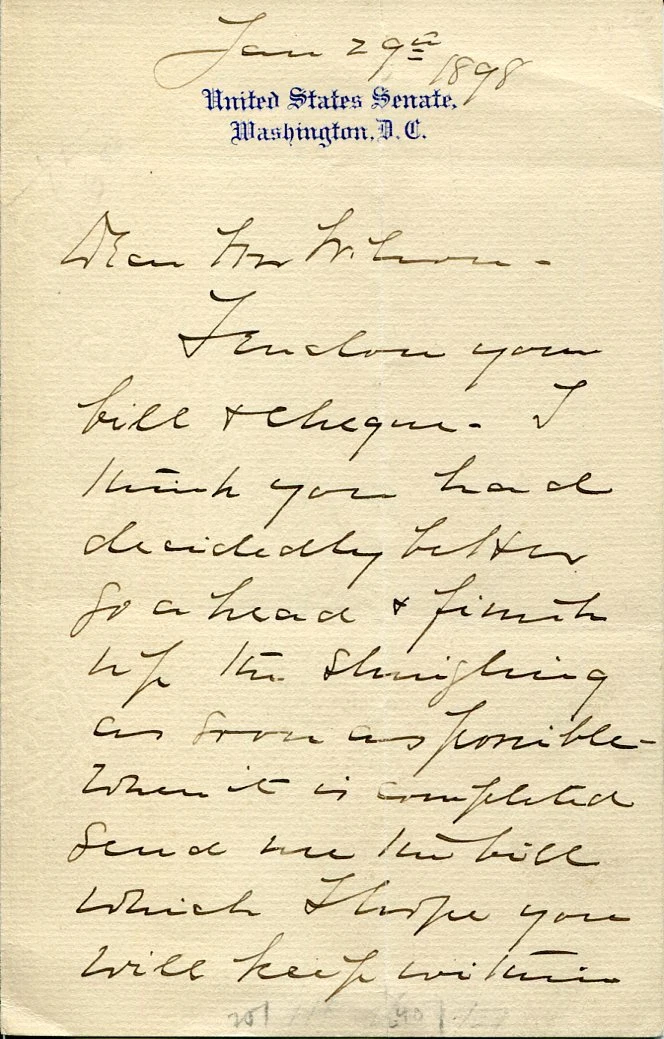 Jan 29th 1898
United States Senate,
Washington, D. C.
Dear Mr Wilson -
I enclose your
bill & cheque - I
think you had
decidedly better
go ahead & finish
up the shingling
as soon as possible -
When it is completed
send me the bill
which I hope you
will keep within